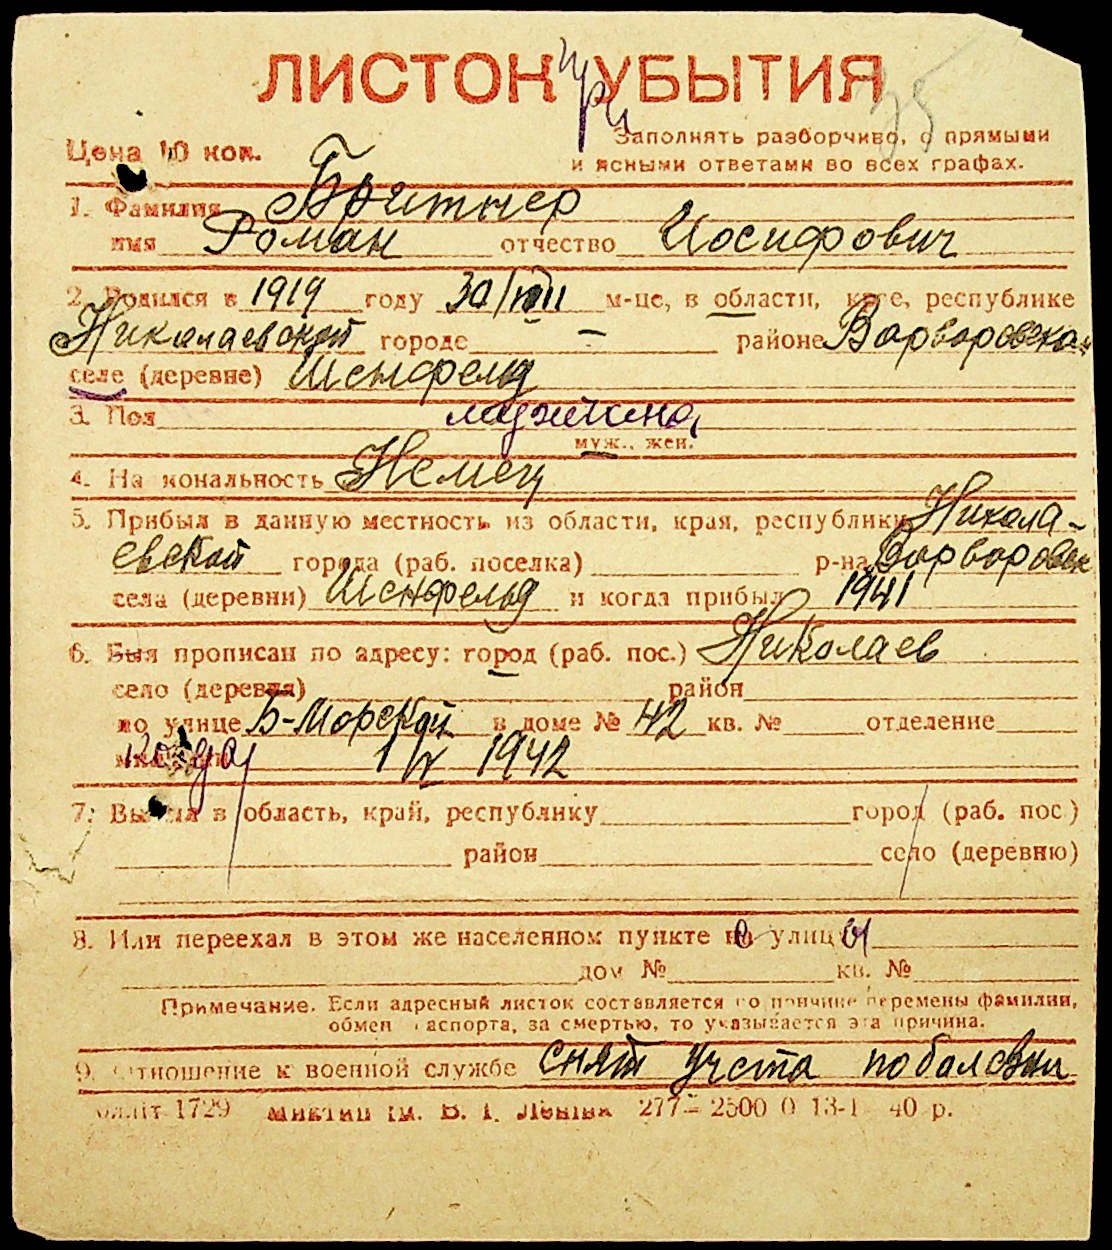 ЛИСТОК при УБЫТИЯ 35
Цена 10 коп.
Заполнять разборчиво, с прямыми
и ясными ответами во всех графах.
1. Фамилия Бритнер
имя Роман отчество Иосифович
2. Родился в 1919 году 30/VIII м-це, в области, крае, республике
Николаевской городе – районе Варваровском
селе (деревне) Шенфельд
3. Пол мужчина
муж., жен.
4. Национальность Немец
5. Прибыл в данную местность из области, края, республики Никола-
евской города (раб. поселка) р-на Варваровск
села (деревни) Шенфельд и когда прибыл 1941
6. Был прописан по адресу: город (раб. пос.) Николаев
село (деревня) район
по улице Б-Морской в доме № 42 кв. № отделение
когда 1/V 1942
7. Выбыл в область, край, республику город (раб. пос.)
район село (деревню)
8. Или переехал в этом же населенном пункте с улицы
дом № кв. №
Примечание. Если адресный листок составляется по причине перемены фамилии,
обмен паспорта, за смертью, то указывается эта причина.
9. Отношение к военной службе снят учета по болезни
1729 В. І. Леніна 277 – 2500 0 13-1 40 р.